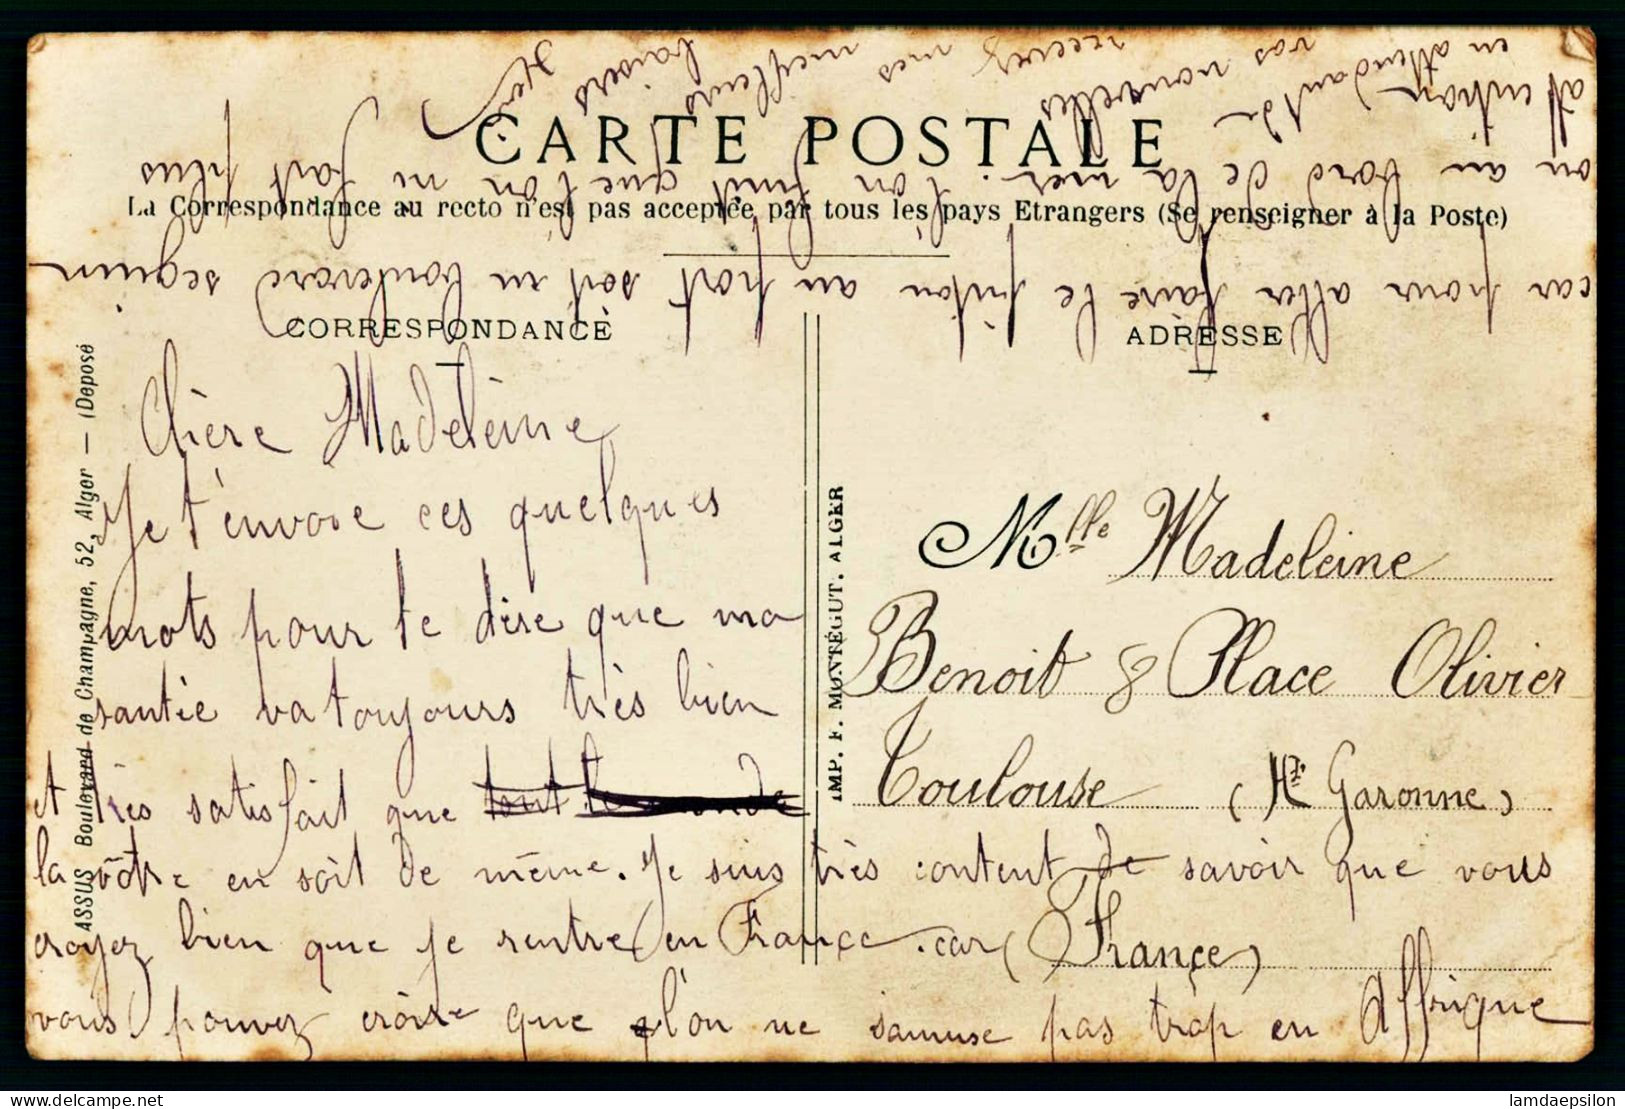 CARTE POSTALE
La Correspondance au recto n'est pas acceptée par tous les pays Etrangers (Se renseigner à la Poste)
CORRESPONDANCE
ADRESSE
ASSUS Boulevard de Champagne, 52, Alger — (Deposé
IMP. F. MONTÉGUT. ALGER
Chère Madeleine
Je t'envoie ces quelques
mots pour te dire que ma
santée va toujours très bien
et très satisfait que tout le monde
la vôtre en soit de même. Je suis très content de savoir que vous
croyez bien que je rentre en France. car
vous pouvez croire que l'on ne samuse pas trop en Affrique
car pour aller faire le piton au port soit un boulevard seguin
ou au bord de la mer. l'on finit que l'on ni fait plus
attention
en attendant de
vos nouvelles
recevez mes meilleurs
baisers
Mlle Madeleine
Benoit 8 Place Olivier
Toulouse (Hte Garonne)
(France)
lamdaepsilon